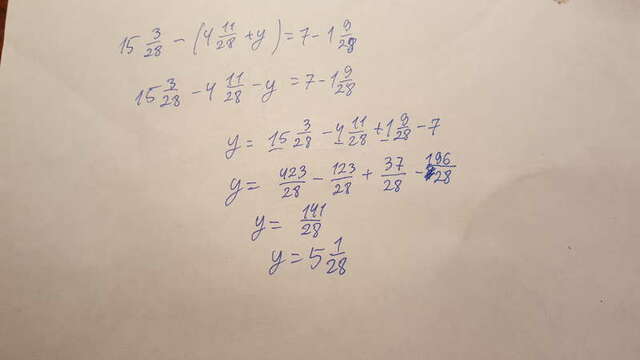 15 3/28 - (4 11/28 + y) = 7 - 1 9/28
15 3/28 - 4 11/28 - y = 7 - 1 9/28
y = 15 3/28 - 4 11/28 + 1 9/28 - 7
y = 423/28 - 123/28 + 37/28 - 196/28
y = 141/28
y = 5 1/28